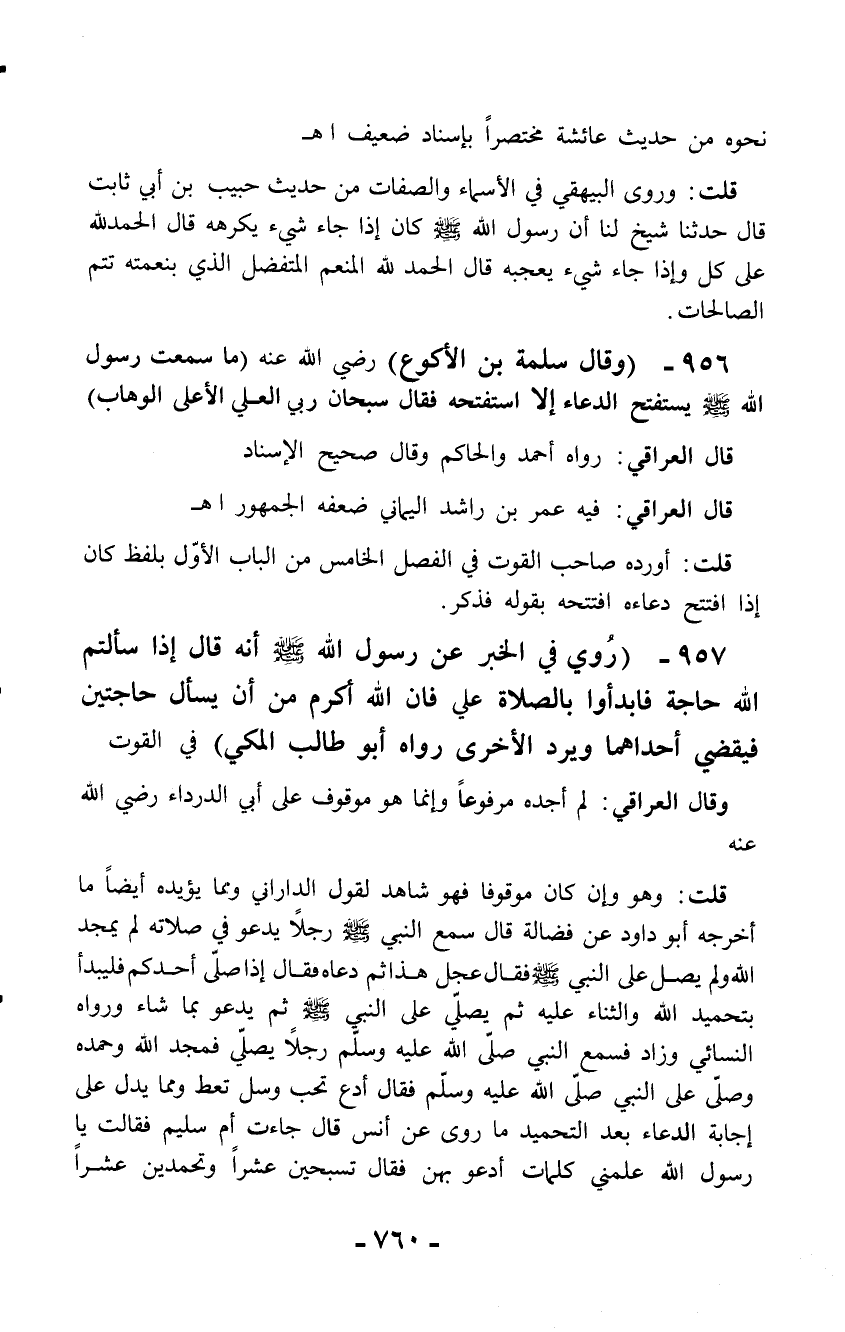 نحوه من حديث عائشة مختصراً بإسناد ضعيف اهـ
قلت: وروى البيهقي في الأسماء والصفات من حديث حبيب بن أبي ثابت
قال حدثنا شيخ لنا أن رسول الله ﷺ كان إذا جاء شيء يكرهه قال الحمدلله
على كل وإذا جاء شيء يعجبه قال الحمد لله المنعم المتفضل الذي بنعمته تتم
الصالحات.
٩٥٦ ـ (وقال سلمة بن الأكوع) رضي الله عنه (ما سمعت رسول
الله ﷺ يستفتح الدعاء إلا استفتحه فقال سبحان ربي العلي الأعلى الوهاب)
قال العراقي: رواه أحمد والحاكم وقال صحيح الإسناد
قال العراقي: فيه عمر بن راشد اليماني ضعفه الجمهور اهـ
قلت: أورده صاحب القوت في الفصل الخامس من الباب الأوّل بلفظ كان
إذا افتتح دعاءه افتتحه بقوله فذكر.
٩٥٧ ـ (رُوي في الخبر عن رسول الله ﷺ أنه قال إذا سألتم
الله حاجة فابدأوا بالصلاة علي فان الله أكرم من أن يسأل حاجتين
فيقضي أحداهما ويرد الأخرى رواه أبو طالب المكي) في القوت
وقال العراقي: لم أجده مرفوعاً وإنما هو موقوف على أبي الدرداء رضي الله
عنه
قلت: وهو وإن كان موقوفا فهو شاهد لقول الداراني ومما يؤيده أيضاً ما
أخرجه أبو داود عن فضالة قال سمع النبي ﷺ رجلًا يدعو في صلاته لم يمجد
الله ولم يصل على النبي ﷺ فقال عجل هذا ثم دعاه فقال إذا صلّى أحدكم فليبدأ
بتحميد الله والثناء عليه ثم يصلّي على النبي ﷺ ثم يدعو بما شاء ورواه
النسائي وزاد فسمع النبي صلّى الله عليه وسلّم رجلًا يصلّي فمجد الله وحمده
وصلّى على النبي صلّى الله عليه وسلّم فقال أدع تحب وسل تعط ومما يدل على
إجابة الدعاء بعد التحميد ما روى عن أنس قال جاءت أم سليم فقالت يا
رسول الله علمني كلمات أدعو بهن فقال تسبحين عشراً وتحمدين عشراً
ـ ٧٦٠ ـ